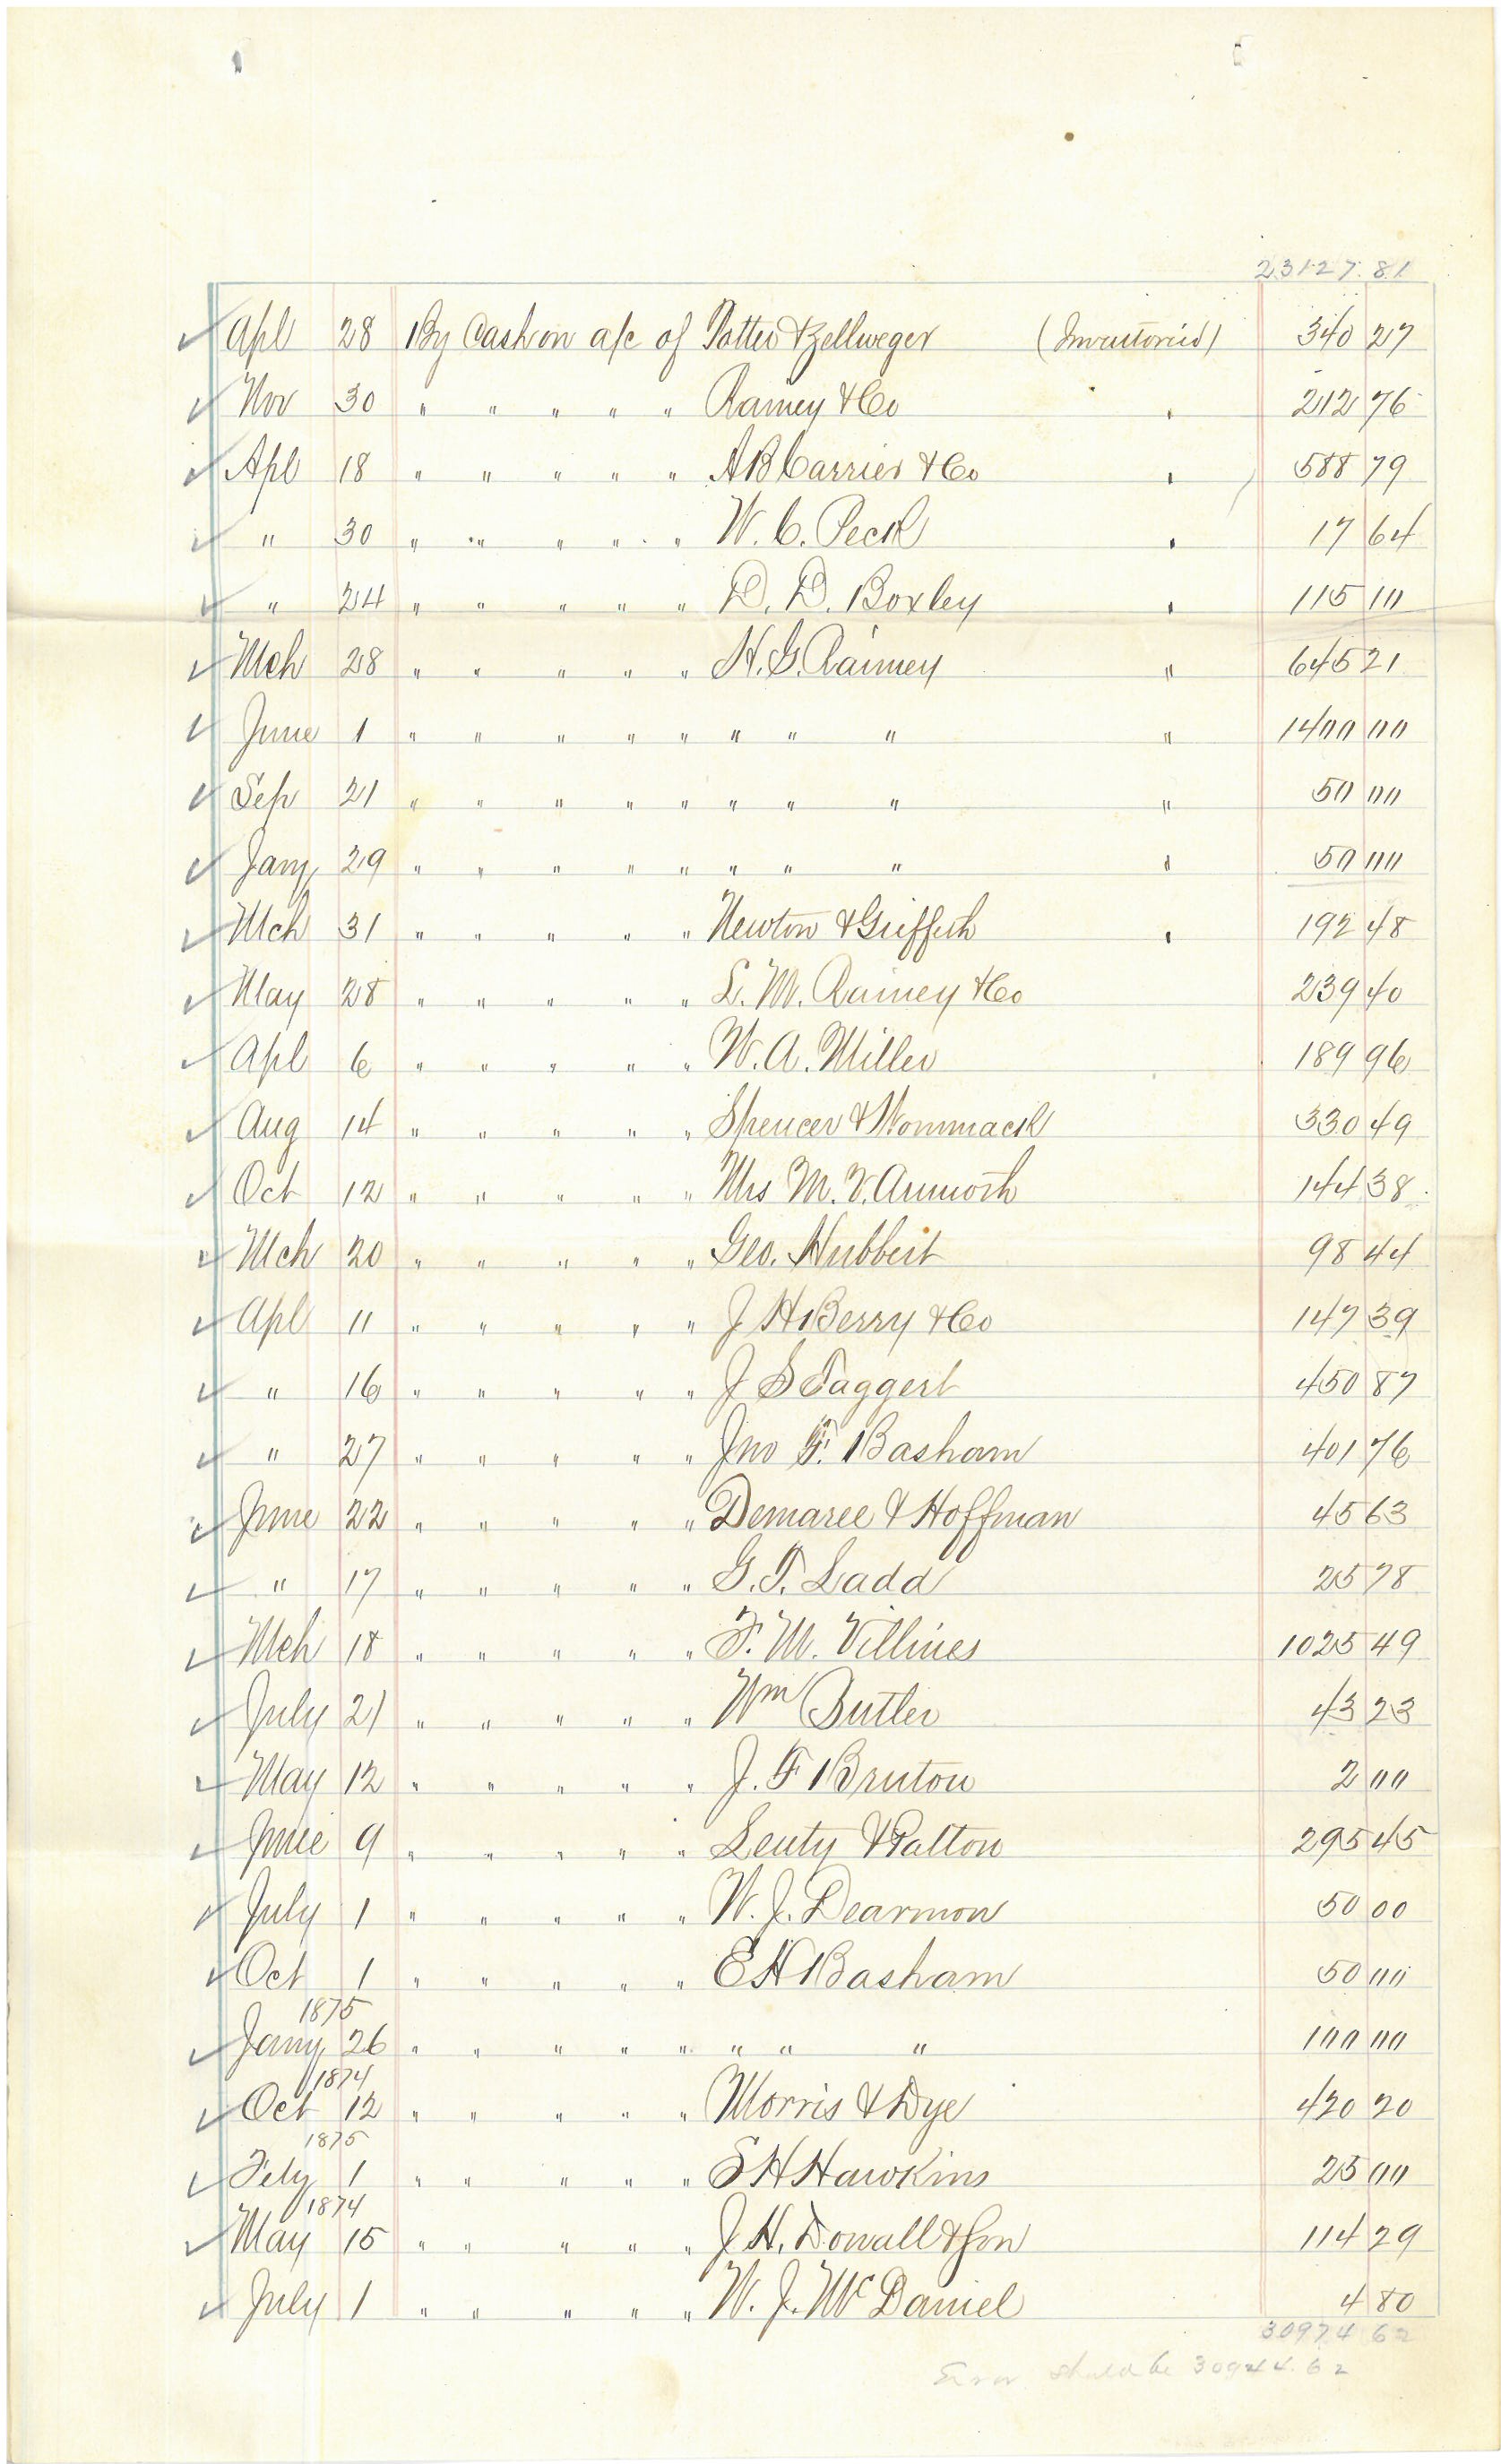 23127.81
Apl 28 By Cash on a/c of Potter & Zellweger (Inventoried) 340 27
Nov 30 " " " " " Rainey & Co " 212 76
Apl 18 " " " " " A B Carrier & Co " 588 79
" 30 " " " " " W. C. Peck " 17 64
" 24 " " " " " D. D. Boxley " 115 10
Mch 28 " " " " " H. G. Rainey " 645 21
June 1 " " " " " " " " " 1400 00
Sep 21 " " " " " " " " " 50 00
Jany 29 " " " " " " " " " 50 00
Mch 31 " " " " " Newton & Griffith " 192 48
May 28 " " " " " L. M. Rainey & Co 239 40
Apl 6 " " " " " W. A. Miller 189 96
Aug 14 " " " " " Spencer & Wommack 330 49
Oct 12 " " " " " Mrs M. V. 144 38
Mch 20 " " " " " Geo. Hubbert 98 44
Apl 11 " " " " " J H Berry & Co 147 39
" 16 " " " " " J S Taggert 450 87
" 27 " " " " " Jno F. Basham 401 76
June 22 " " " " " Demaree & Hoffman 45 63
" 17 " " " " " G. T. Ladd 25 78
Mch 18 " " " " " F. M. Villines 1025 49
July 21 " " " " " Wm Butler 43 23
May 12 " " " " " J. F Bruton 2 00
June 9 " " " " " Lenty & Patton 295 45
July 1 " " " " " W. J. Dearmon 50 00
Oct 1 " " " " " E H Basham 50 00
1875
Jany 26 " " " " " " " " 100 00
1874
Oct 12 " " " " " Morris & Dye 420 20
1875
Feby 1 " " " " " S H Hawkins 25 00
1874
May 15 " " " " " J. H. Dowall & Son 114 29
July 1 " " " " " W. J. McDaniel 4 80
30974 62
Error should be 30944.62